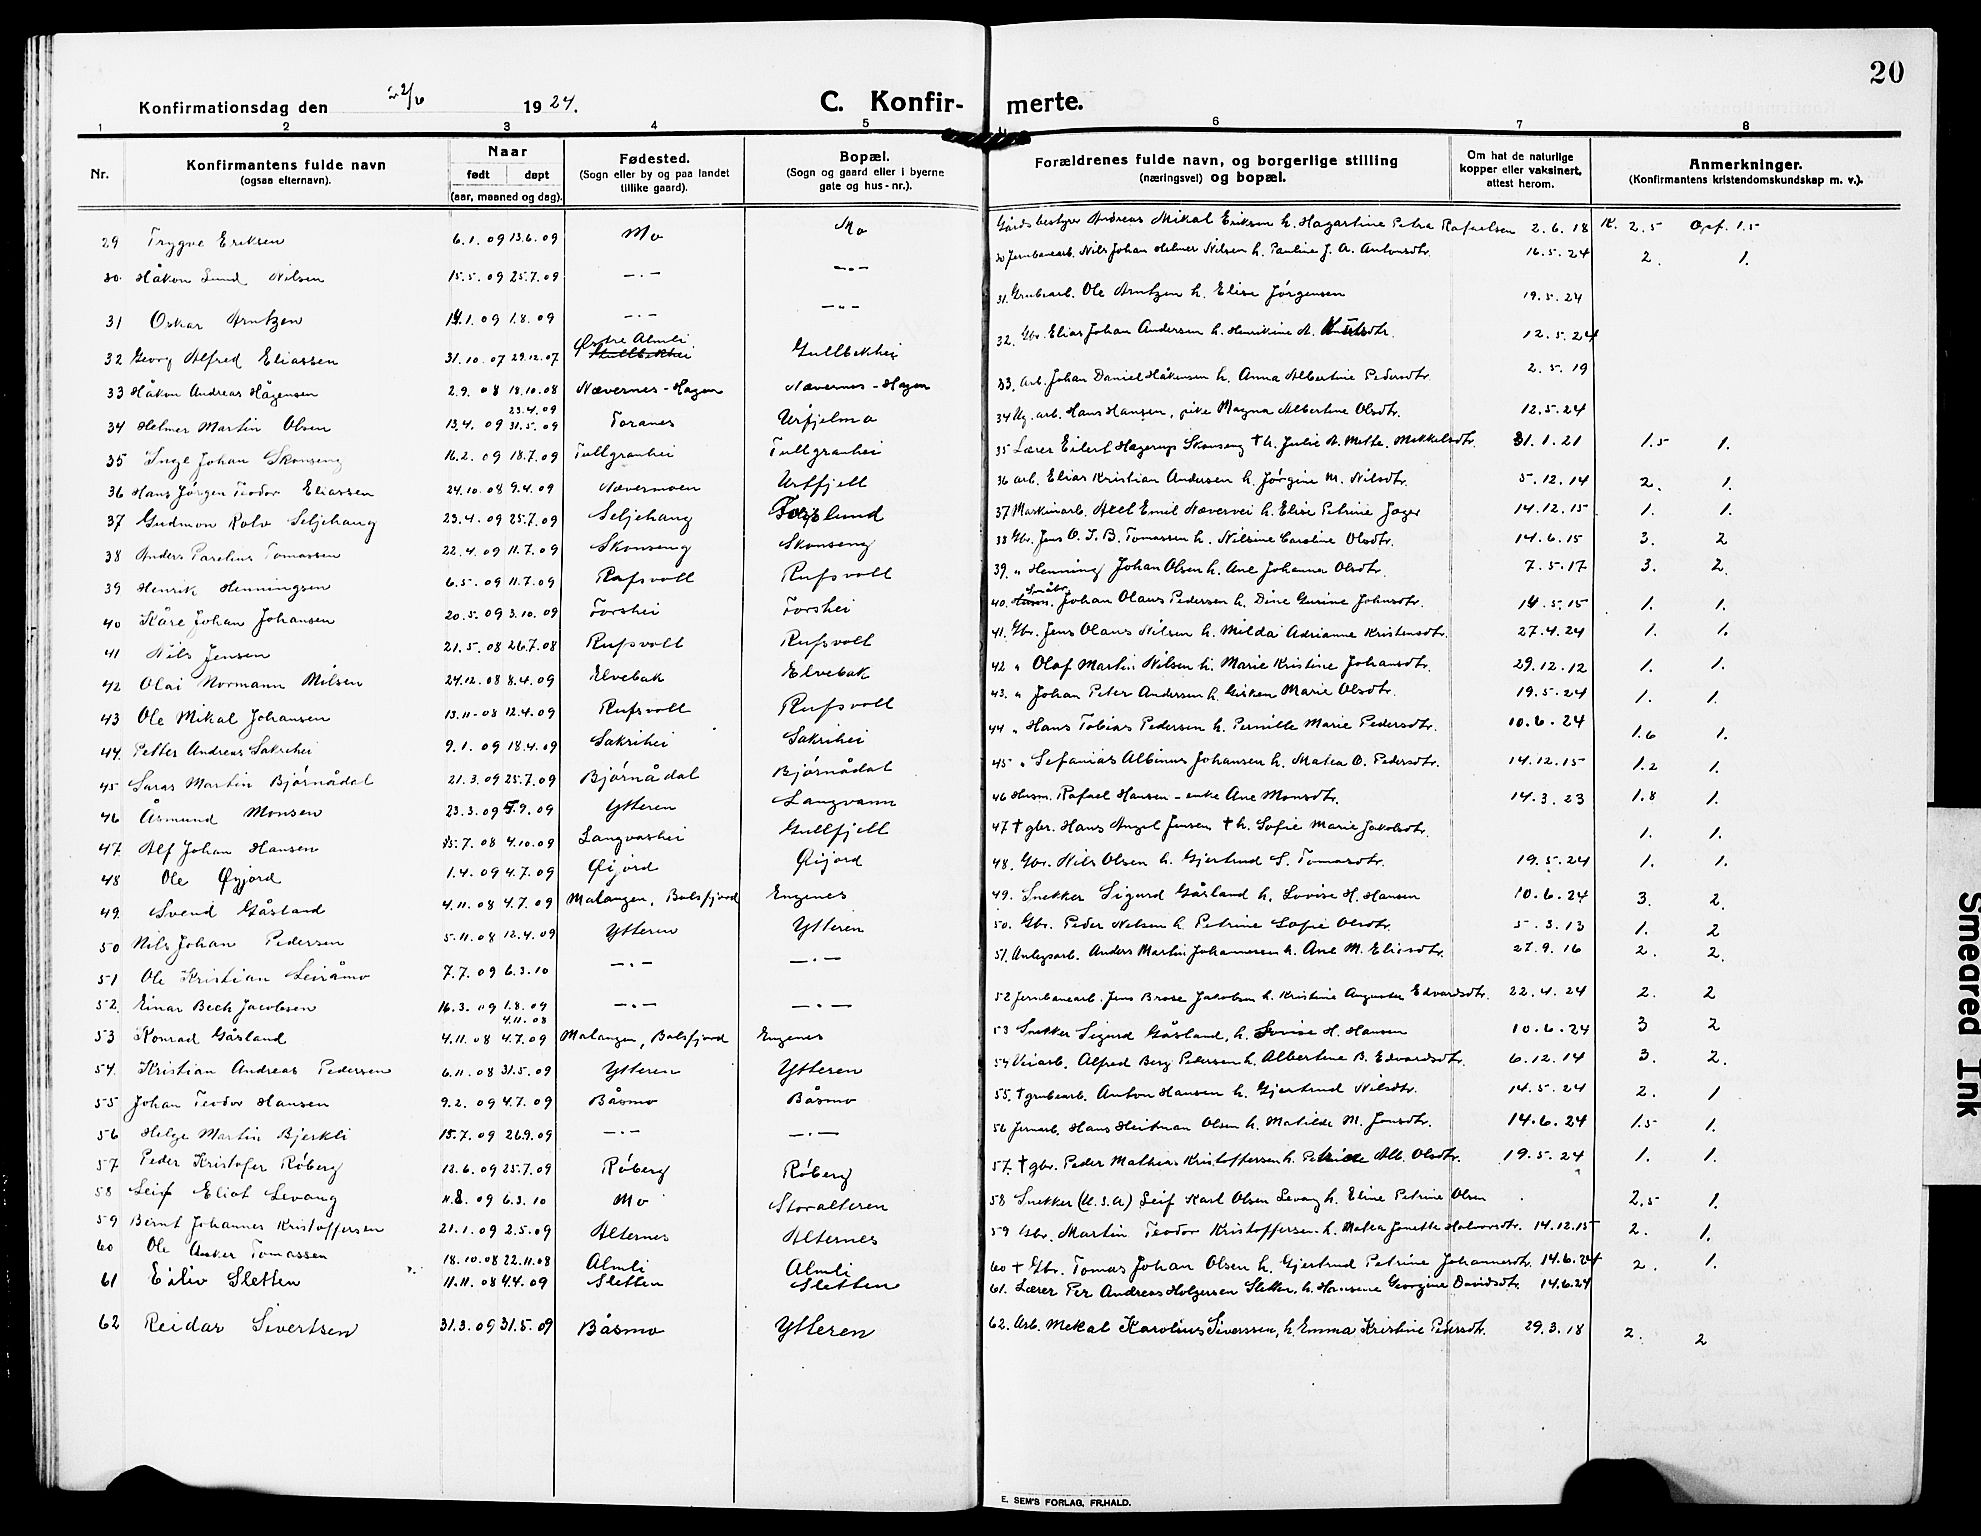 20
Konfirmationsdag den 22/6 1924.
C. Konfirmerte.
1 2 3 4 5 6 7 8
Nr.
Konfirmantens fulde navn
(ogsaa efternavn).
Naar
født døpt
(aar, maaned og dag).
Fødested.
(Sogn eller by og paa landet
tillike gaard).
Bopæl.
(Sogn og gaard eller i byerne
gate og hus-nr.).
Forældrenes fulde navn, og borgerlige stilling
(næringsvei) og bopæl.
Om hat de naturlige
kopper eller vaksinert,
attest herom.
Anmerkninger.
(Konfirmantens kristendomskundskap m. v.).
29 Trygve Eriksen 6.1.09 13.6.09 Mo Mo Gårdsbestyrer Andreas Mikal Eriksen h. Hagartine Petra Rafaelsen 2.6.18 K. 2,5 Opf. 1.5
30 Håkon Lund Nilsen 15.5.09 25.7.09 —·— —·— 30 Jernbanearb. Nils Johan Helmer Nilsen h. Pauline J. A. Antonsdtr. 16.5.24 2. 1.
31 Oskar Arntzen 14.1.09 1.8.09 —·— —·— 31. Grubearb. Ole Arntzen h. Elise Jørgensen 19.5.24
32 Georg Alfred Eliassen 31.10.07 29.12.07 Østre Almli Gullbekhei 32. Gbr. Elias Johan Andersen h. Henrikine A. 12.5.24
33 Håkon Andreas Hågensen 2.9.08 18.10.08 Nævernes-Hagen Nævernes-Hagen 33. Arb. Johan Daniel Håkensen h. Anna Albertine Pedersdtr. 2.5.19
23.4.09
34 Helmer Martin Olsen 13.4.09 31.5.09 Toranes Urfjelmo 34 Ug. arb. Hans Hansen, pike Magna Albertine Olsdtr. 12.5.24
35 Inge Johan Skonseng 16.2.09 18.7.09 Tullgranhei Tullgranhei 35 Lærer Eilert Hagerup Skonseng † h. Julie A. Mette Mikkelsdtr. 31.1.21 1.5 1.
36 Hans Jørgen Teodor Eliassen 24.10.08 9.4.09 Nævermoen Urtfjell 36 arb. Elias Kristian Andersen h. Jørgine M. Nilsdtr. 5.12.14 2. 1.
37 Gudmon Rolv Seljehaug 23.4.09 25.7.09 Seljehaug 37 Maskinarb. Axel Emil Nævernei h. Elise Petrine Jæger 14.12.15 1. 1.
38 Anders Parelius Tomassen 22.4.09 11.7.09 Skonseng Skonseng 38 Gbr. Jens O. J. B. Tomassen h. Nilsine Caroline Olsdtr. 14.6.15 3. 2
39 Henrik Henningsen 6.5.09 11.7.09 Rufsvolt Rufsvolt 39. " Henning Johan Olsen h. Ane Johanna Olsdtr. 7.5.17 3. 2.
40 Kåre Johan Johansen 20.5.09 3.10.09 Forshei Forshei 40. Småbr. Johan Olaus Pedersen h. Dine Gurine Johnsdtr. 14.5.15 1. 1.
41 Nils Jensen 21.5.08 26.7.08 Rufsvolt Rufsvolt 41. Gbr. Jens Olaus Nilsen h. Milda Adrianne Kristensdtr. 27.4.24 1. 1.
42 Olai Normann Nilsen 24.12.08 8.4.09 Elvebak Elvebak 42 " Olaf Martin Nilsen h. Marie Kristine Johansdtr. 29.12.12 1. 1.
43 Ole Mikal Johansen 13.11.08 12.4.09 Rufsvolt Rufsvolt 43. " Johan Peter Andersen h. Gisken Marie Olsdtr. 19.5.24 1. 1.
44. Petter Andreas Sakrihei 9.1.09 18.4.09 Sakrihei Sakrihei 44 " Hans Tobias Pedersen h. Pernille Marie Pedersdtr. 10.6.24 1.6 1.
45 Saras Martin Bjørnådal 21.3.09 25.7.09 Bjørnådal Bjørnådal 45 " Sefanias Albinus Johansen h. Matea O. Pedersdtr. 14.12.15 1.2 1.
46 Åsmund Monsen 23.3.09 5.9.09 Ytteren Langvann 46 Husm. Rafael Hansen - enke Ane Monsdtr. 14.3.23 1.8 1.
47 Alf Johan Hansen 15.7.08 4.10.09 Langvashei Gullfjell 47 † gbr. Hans Angel Jensen † h. Sofie Marie Jakobsdtr. 1. 1.
48 Ole Øyjord 1.4.09 4.7.09 Øijord Øijord 48. Gbr. Nils Olsen h. Gjertrud S. Tomasdtr. 19.5.24 1. 1.
49. Svend Gåsland 4.11.08 4.7.09 Malangen, Balsfjord Engenes 49. Snekker Sigurd Gåsland h. Lovise H. Hansen 10.6.24 3. 2.
50 Nils Johan Pedersen 5.11.08 12.4.09 Ytteren Ytteren 50. Gbr. Peder Nilsen h. Petrine Sofie Olsdtr. 5.3.13 1. 2
51 Ole Kristian Leiråmo 7.7.09 6.3.10 —·— —·— 51. Anlegsarb. Anders Martin Johannesen h. Ane M. Eliasdtr. 27.9.16 2. 2.
52. Einar Bech Jacobsen 16.3.09 1.8.09 —·— —·— 52 Jernbanearb. Jens Brose Jakobsen h. Kristine Augusta Edvardsdtr. 22.4.24 2. 2
4.11.08
53 Konrad Gåsland 4.11.08 4.7.09 Malangen, Balsfjord Engenes 53 Snekker Sigurd Gåsland, h. Lovise H. Hansen 10.6.24 3 2
54. Kristian Andreas Pedersen 6.11.08 31.5.09 Ytteren Ytteren 54 Veiarb. Alfred Berg Pedersen h. Albertine B. Edvardsdtr. 6.12.14 3. 2.
55 Johan Teodor Hansen 9.2.09 4.7.09 Båsmo Båsmo 55. † grubearb. Anton Hansen h. Gjertrud Nilsdtr. 14.5.24 2. 1
56 Helge Martin Bjerkli 15.7.09 26.9.09 —·— —·— 56 Jernarb. Hans Heitman Olsen h. Matilde M. Jonsdtr. 14.6.24 1.5 1.
57 Peder Kristofer Røberg 12.6.09 25.7.09 Røberg Røberg 57. † gbr. Peder Mathias Kristoffersen h. Petrine Alb. Olsdtr. 19.5.24 1. 1.
58 Leif Eliot Levang 11.8.09 6.3.10 Mo Storalteren 58 Snekker (U.S.A) Leif Karl Olsen Levang h. Eline Petrine Olsen 2,5 1.
59 Bernt Johannes Kristoffersen 21.1.09 2.5.09 Alternes Alternes 59 Gbr. Martin Teodor Kristoffersen h. Matea Jonette Halvorsdtr. 14.12.15 2. 1.
60 Ole Anker Tomassen 18.10.08 22.11.08 Almli Almli 60 † Gbr. Tomas Johan Olsen h. Gjertrud Petrine Johannesdtr. 14.6.24 2. 1.
61 Eiliv Sletten 11.11.08 4.4.09 Sletten Sletten 61. Lærer Per Andreas Holgersen Sletten, h. Hansine Georgine Davidsdtr. 14.6.24
62 Reidar Sivertsen 31.3.09 31.5.09 Båsmo Ytteren 62. Arb. Mekal Karolius Siverssen, h. Emma Kristine Pedersdtr. 29.3.18 2. 2
E. SEM'S FORLAG, FR.HALD.
Smeared Ink